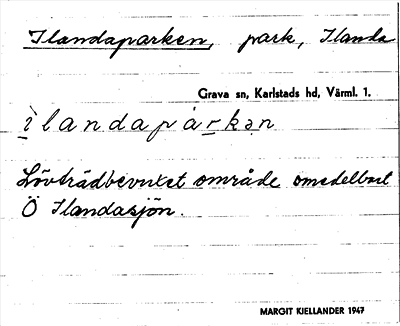 Ilandaparken, park, Ilanda
Grava sn, Karlstads hd, Värml. 1.
ìlandapàrkən
Lövträdbevuxet område omedelbart
Ö Ilandasjön.
MARGIT KJELLANDER 1947